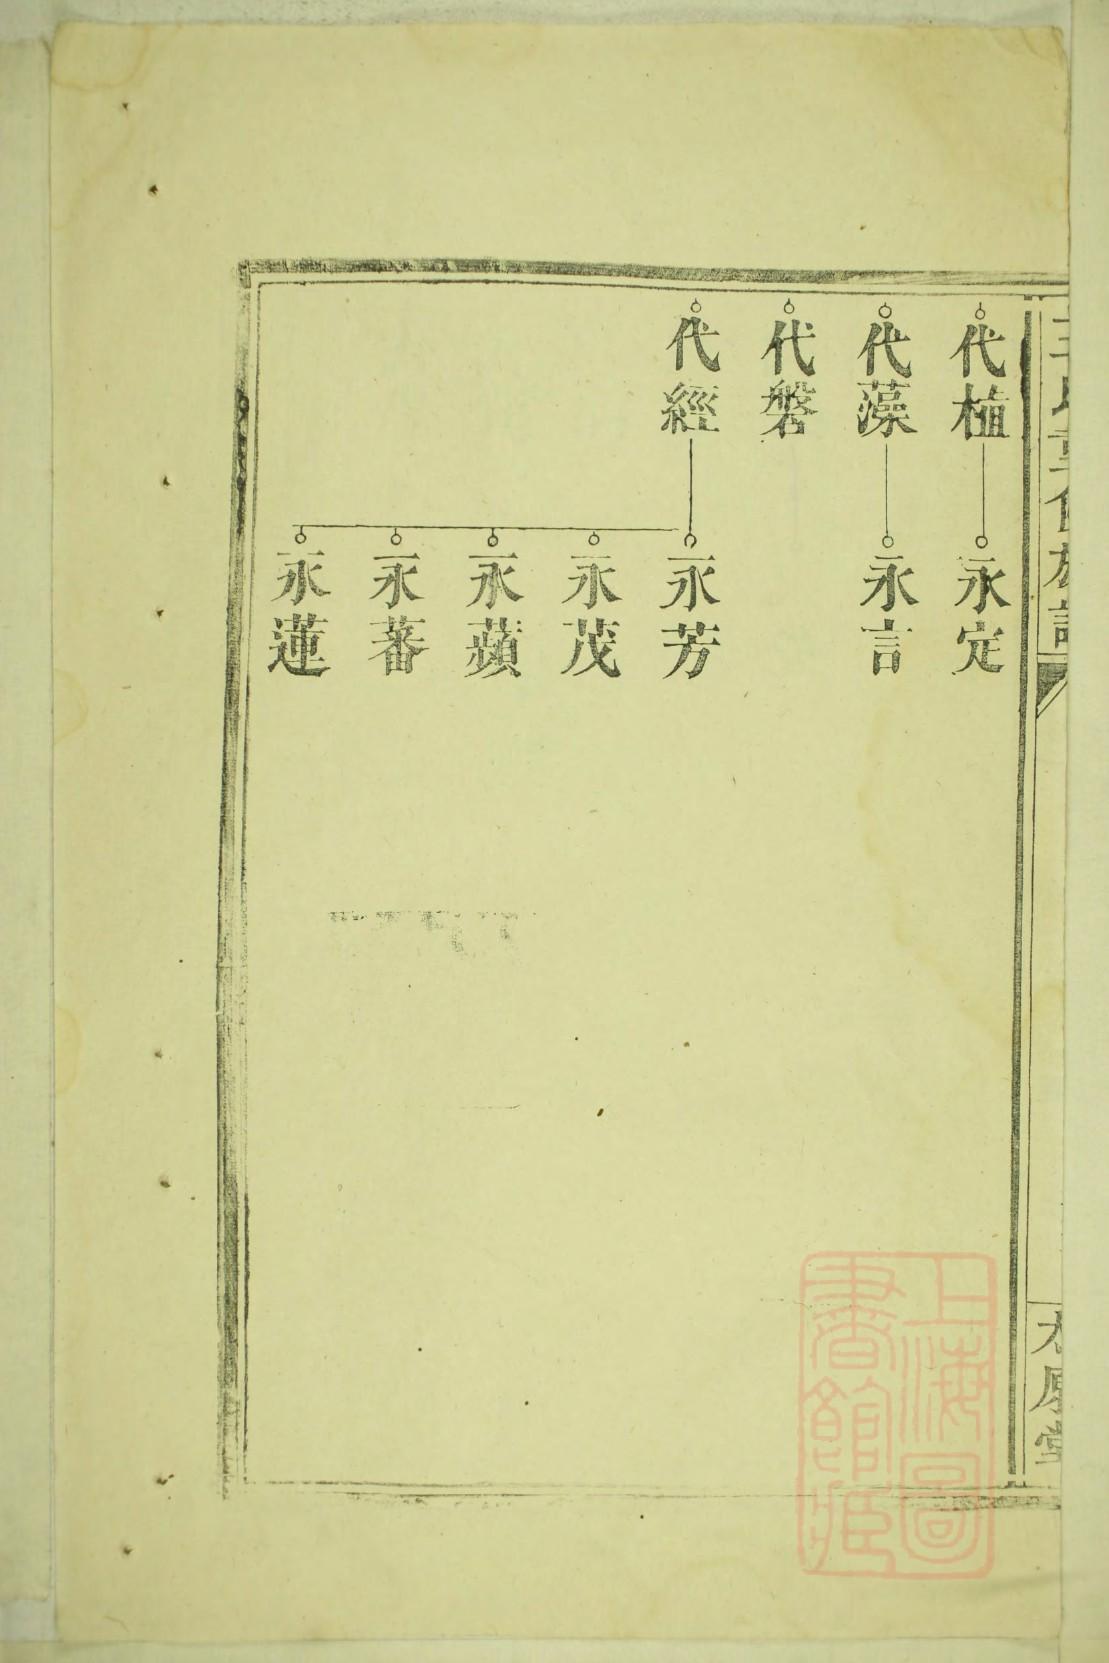 王氏重修族譜
太原堂
代植
永定
代藻
永言
代磐
代經
永芳
永茂
永蘋
永蕃
永蓮
上海圖
書館藏